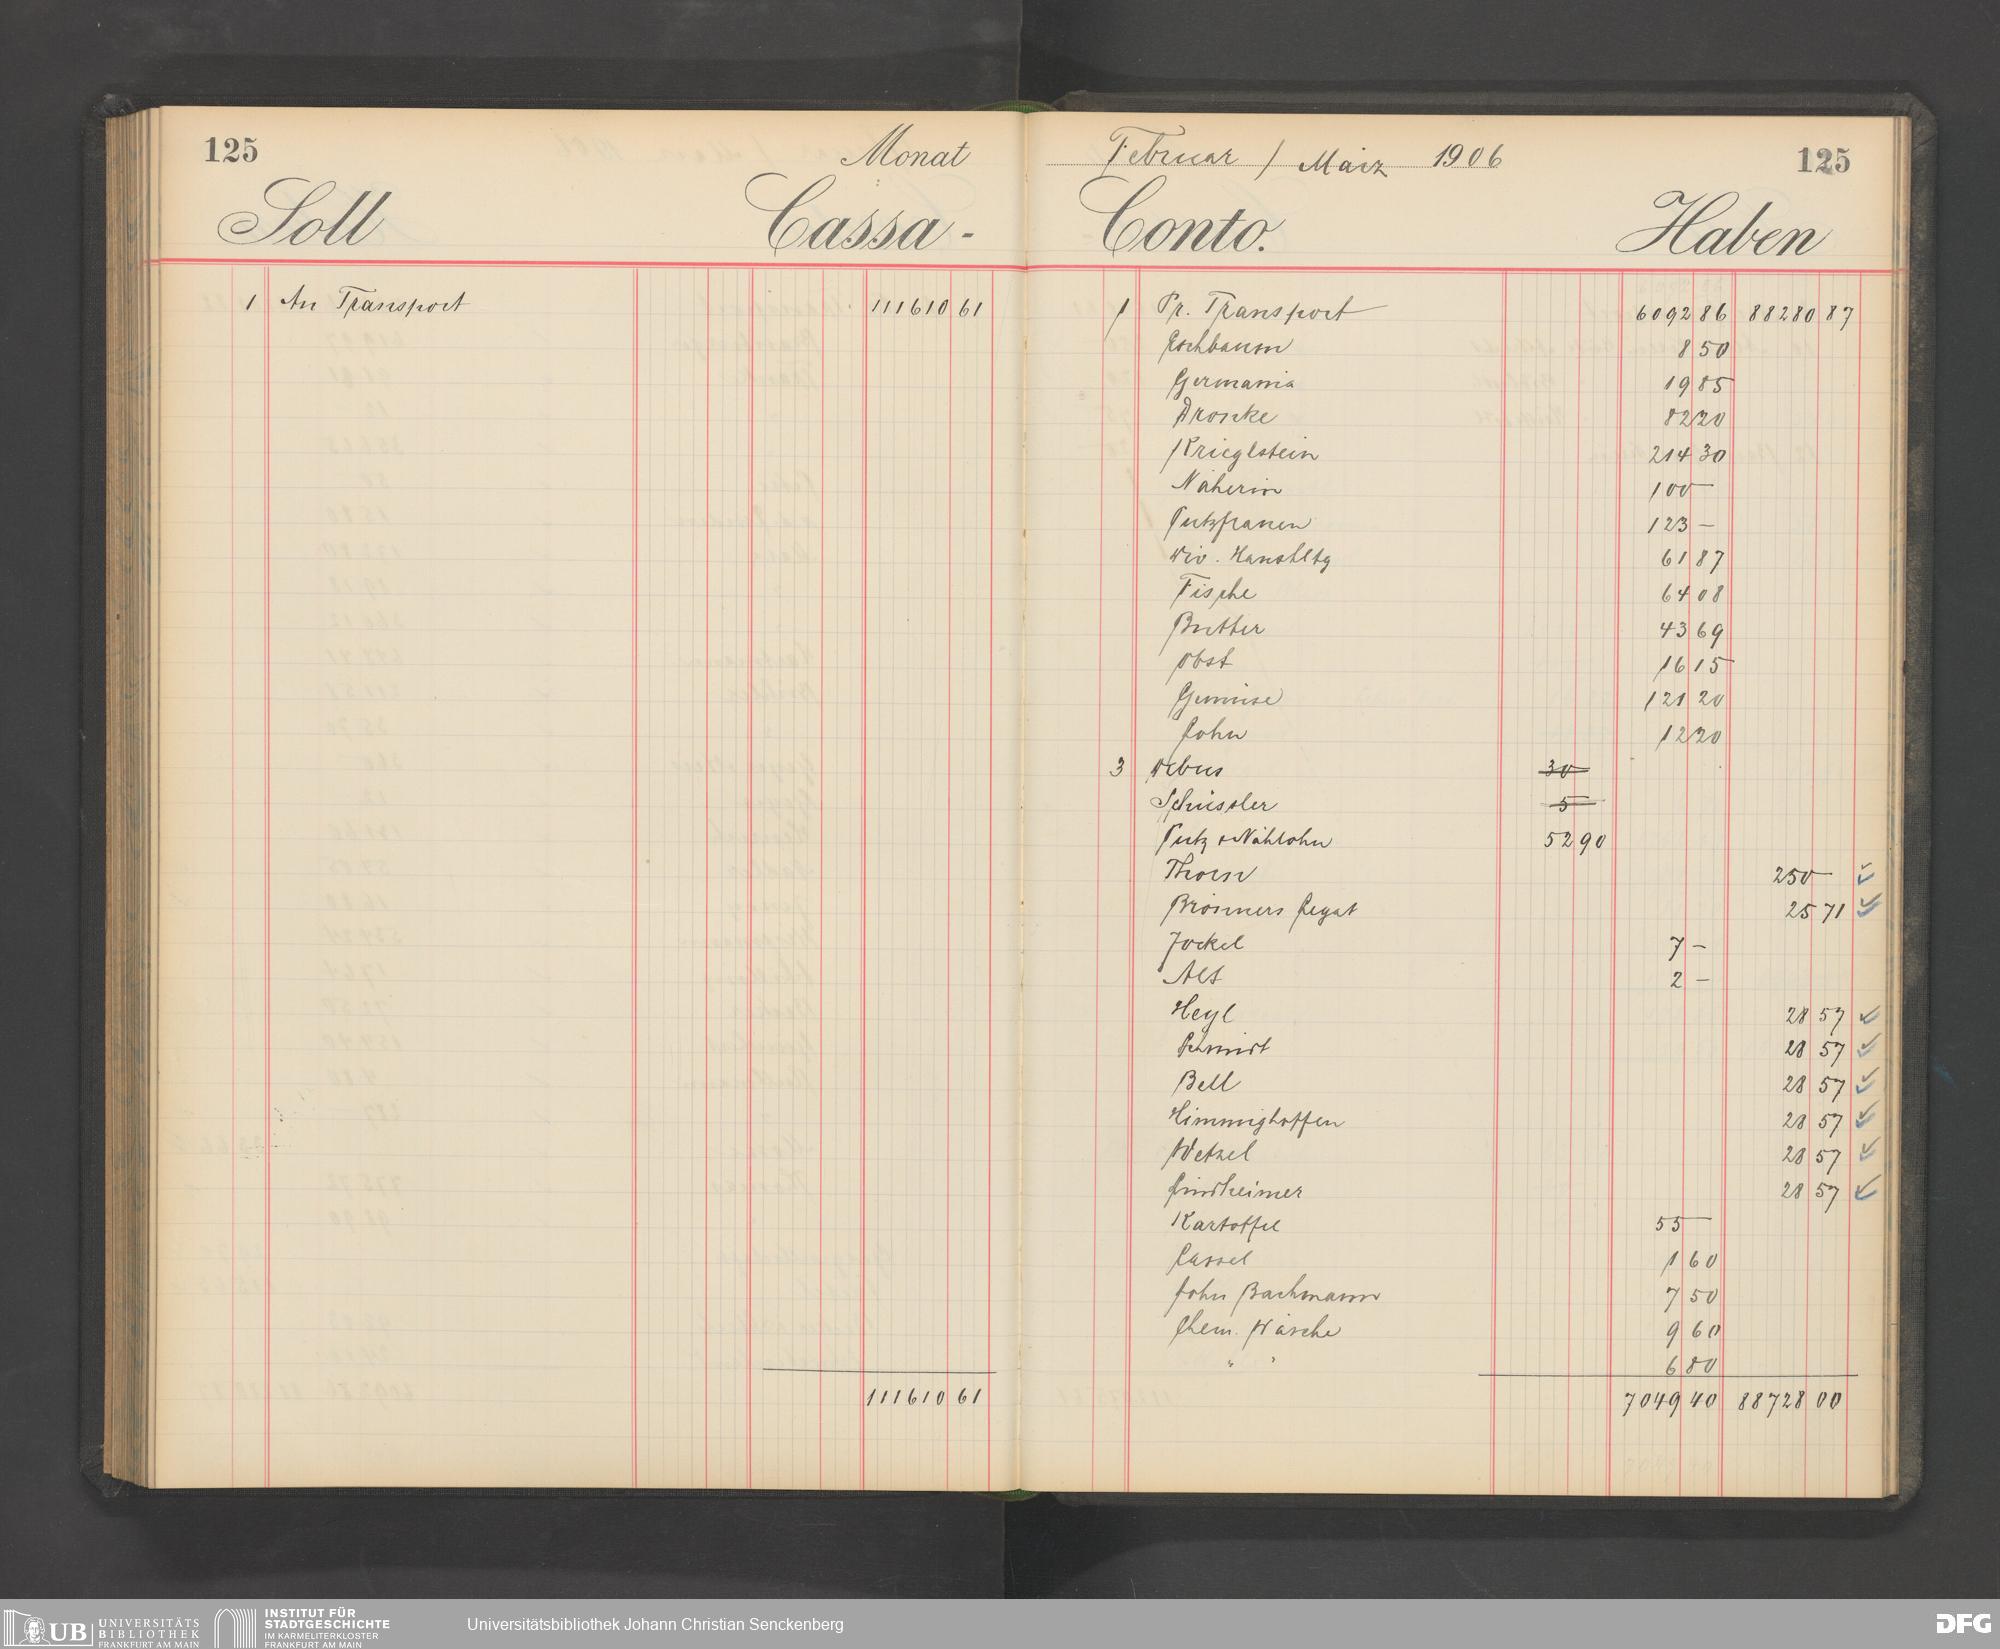 125
Monat
Februar / März 1906
125
Soll
Cassa-
Conto.
Haben
1 An Transport 111610 61
111610 61
1 Pr. Transport 6092 86 88280 87
Eschbaum 8 50
Germania 19 85
Dronke 82 20
Krieglstein 214 30
Näherin 100 —
Putzfrauen 123 —
Div. Haushltg 61 87
Fische 64 08
Butter 43 69
Obst 16 15
Gemüse 121 20
Lohn 12 20
3 Debus 30
Schüssler 5
Putz & Nählohn 52 90
Thorn 250 —
Brönners Legat 25 71
Jockel 7 —
Alt 2 —
Heyl 28 57
Schmidt 28 57
Bell 28 57
Himmighoffen 28 57
Wetzel 28 57
Lindheimer 28 57
Kartoffel 55 —
Cassel 1 60
Lohn Bachmann 7 50
Chem. Wäsche 9 60
" " 6 80
7049 40 88728 00
UB UNIVERSITÄTS
BIBLIOTHEK
FRANKFURT AM MAIN
INSTITUT FÜR
STADTGESCHICHTE
IM KARMELITERKLOSTER
FRANKFURT AM MAIN
Universitätsbibliothek Johann Christian Senckenberg
DFG